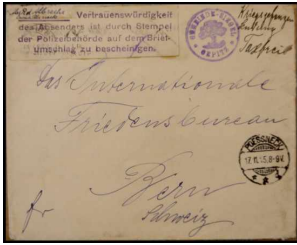 Vertrauenswürdigkeit
des Absenders ist durch Stempel
der Polizeibehörde auf dem Brief-
umschlag zu bescheinigen.
Kriegsgefangenen
Sendung
Taxfrei
Das Internationale
Friedensbureau
Bern
Schweiz
POESSNECK
17.11.15.8-9V.